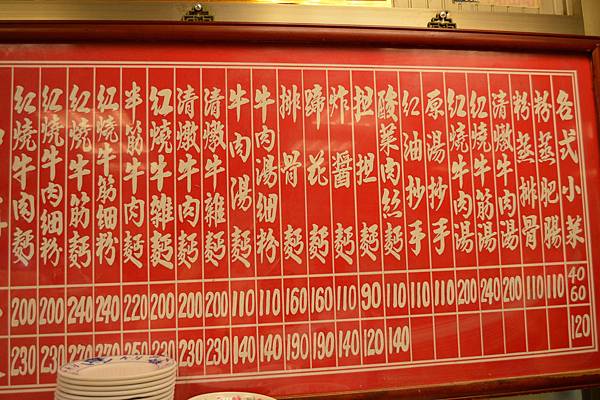 各式小菜 40 60 120
粉蒸肥腸 110
粉蒸排骨 110
清燉牛肉湯 200
紅燒牛筋湯 240
紅燒牛肉湯 200
原湯抄手 110
紅油抄手 110
酸菜肉絲麵 110 140
担担麵 90 120
炸醬麵 110 140
蹄花麵 160 190
排骨麵 160 190
牛肉湯細粉 110 140
牛肉湯麵 110 140
清燉牛雜麵 200 230
清燉牛肉麵 200 230
紅燒牛雜麵 200
半筋牛肉麵 220 250
紅燒牛筋細粉 240 270
紅燒牛筋麵 240 270
紅燒牛肉細粉 200 230
紅燒牛肉麵 200 230